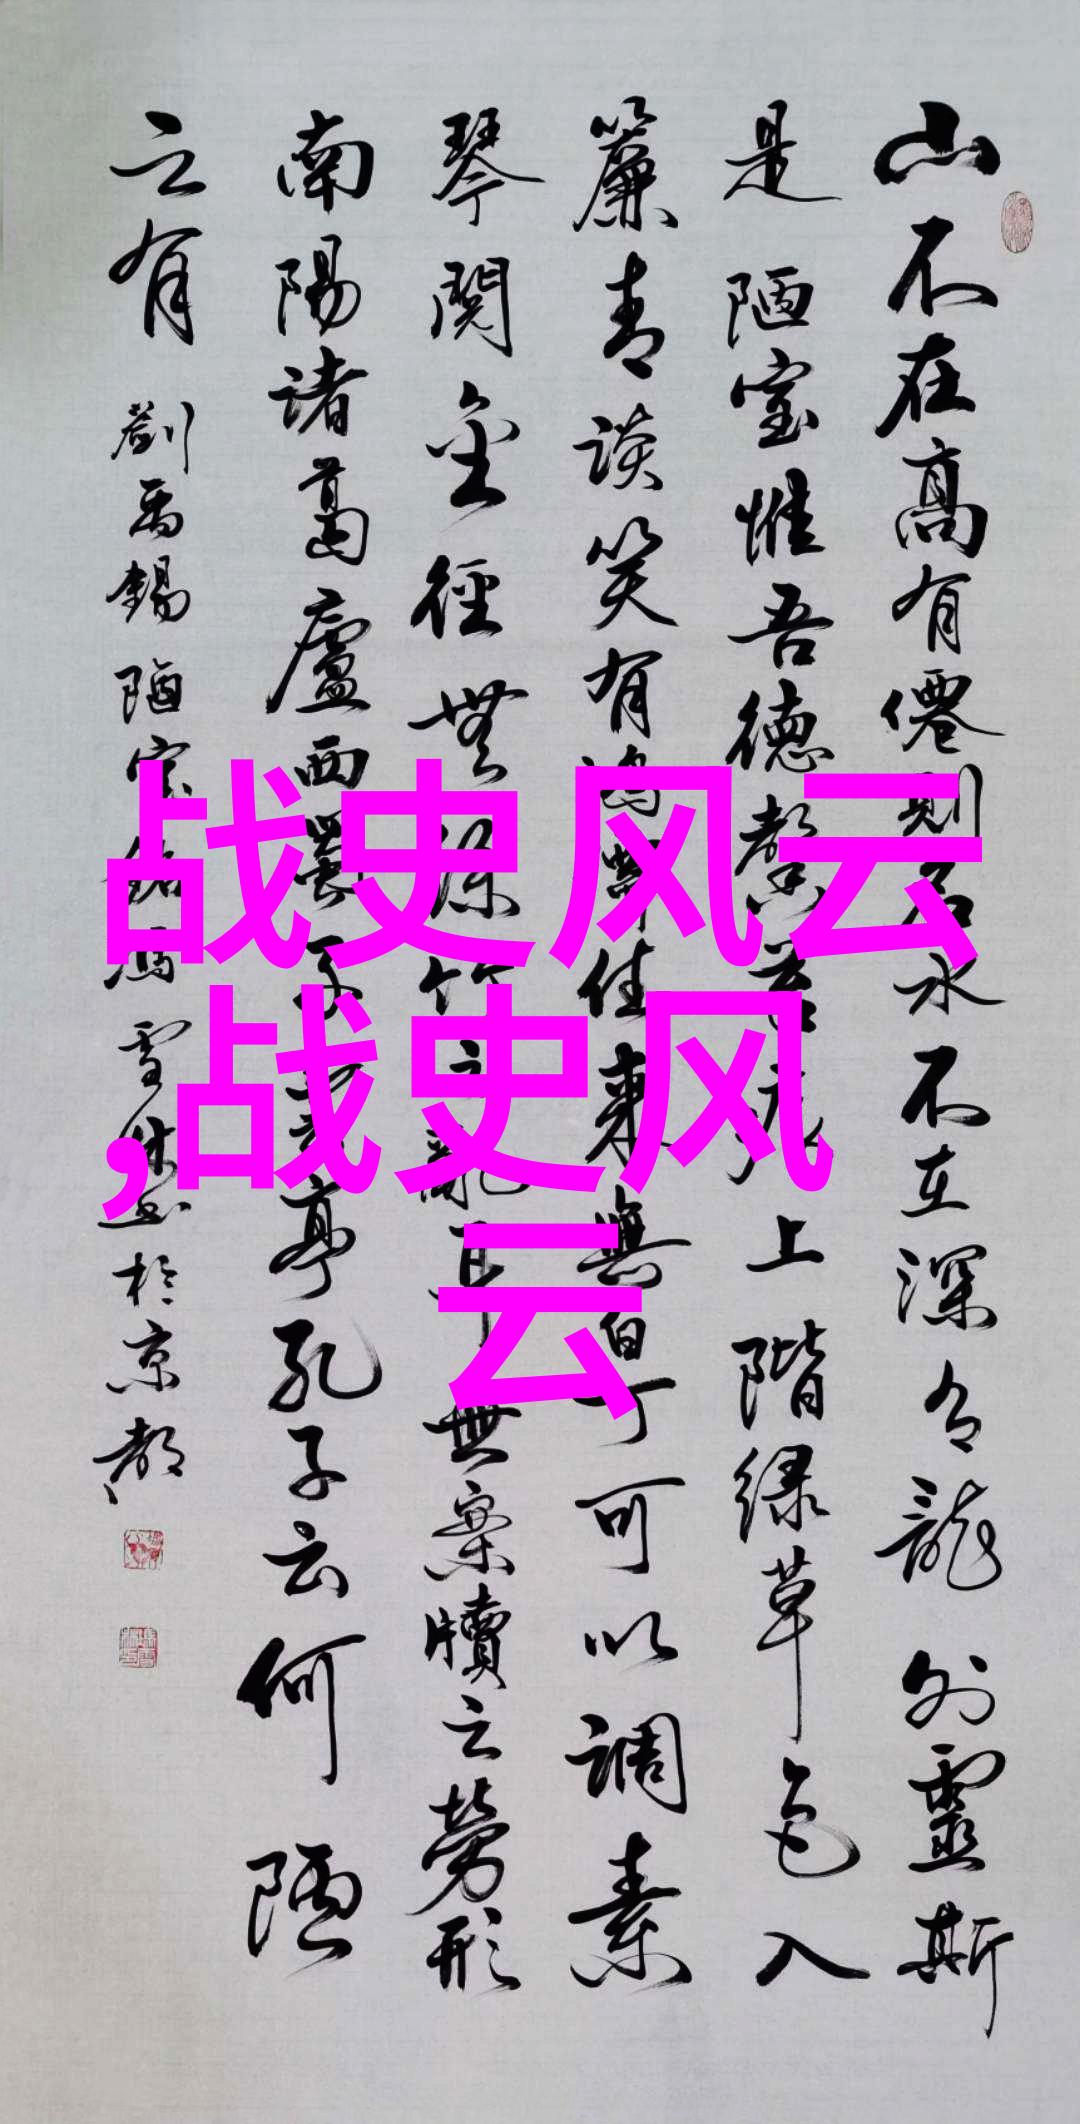 山不在高有僊则名水不在深有龍则靈斯
是陋室惟吾德馨苔痕上階绿草色入
簾青谈笑有鸿儒往来無白丁可以调素
琴閱金徑無丝竹之亂耳無案牘之勞形
南陽诸葛廬西蜀子云亭孔子云何陋
之有 劉禹錫陋室铭馮雪林书於京都
战史风云
,战史风
云